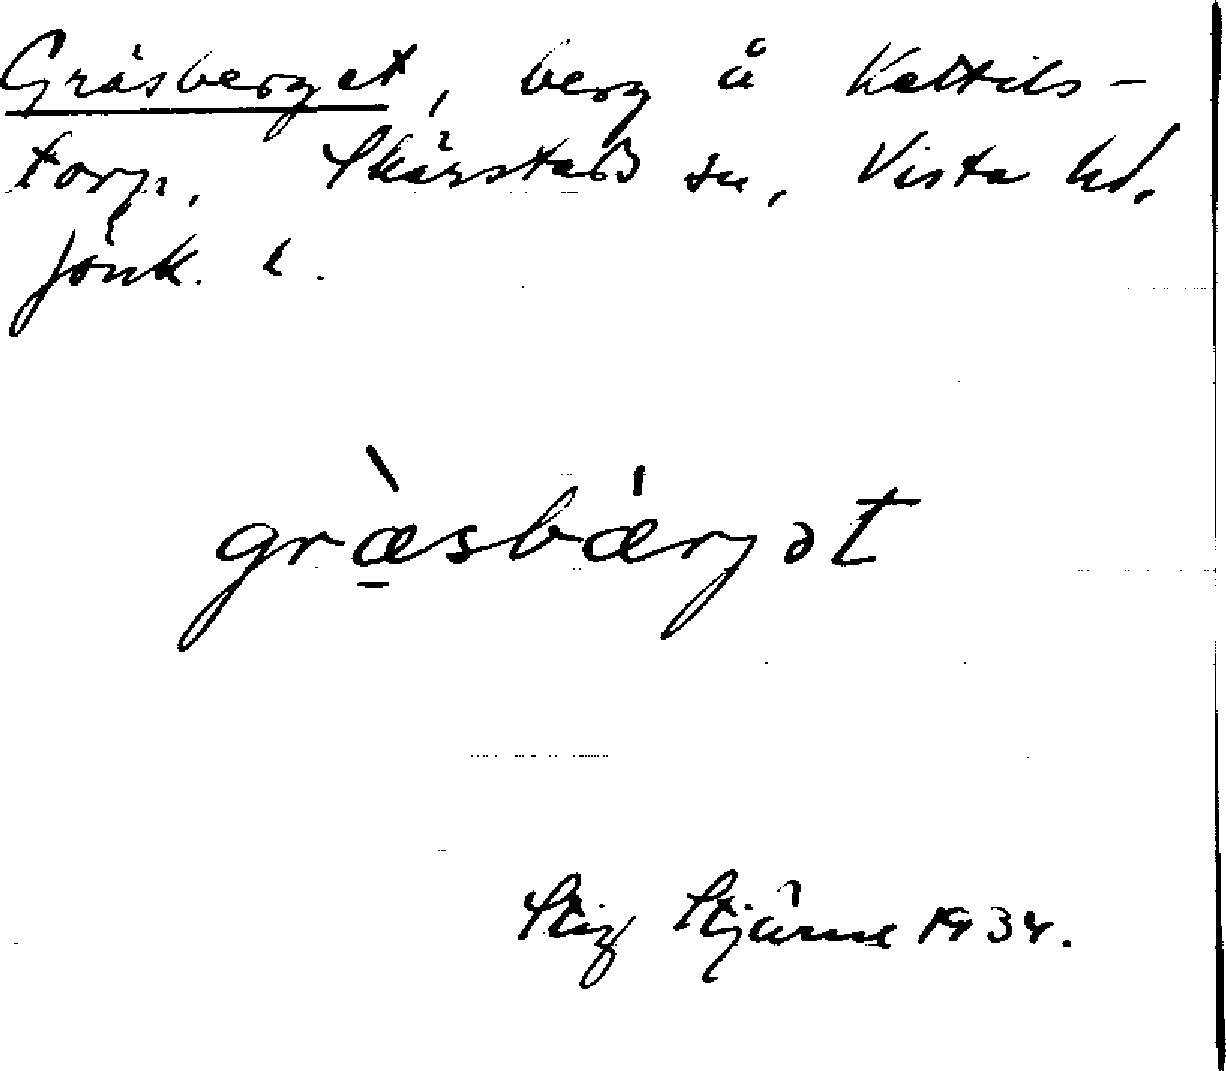 Gräsberget, berg å Kettils-
torp, Skärstads sn, Vista hd.
Jönk. l.
græ̱̀sbǽrjət
Stig Stjärne 1934.